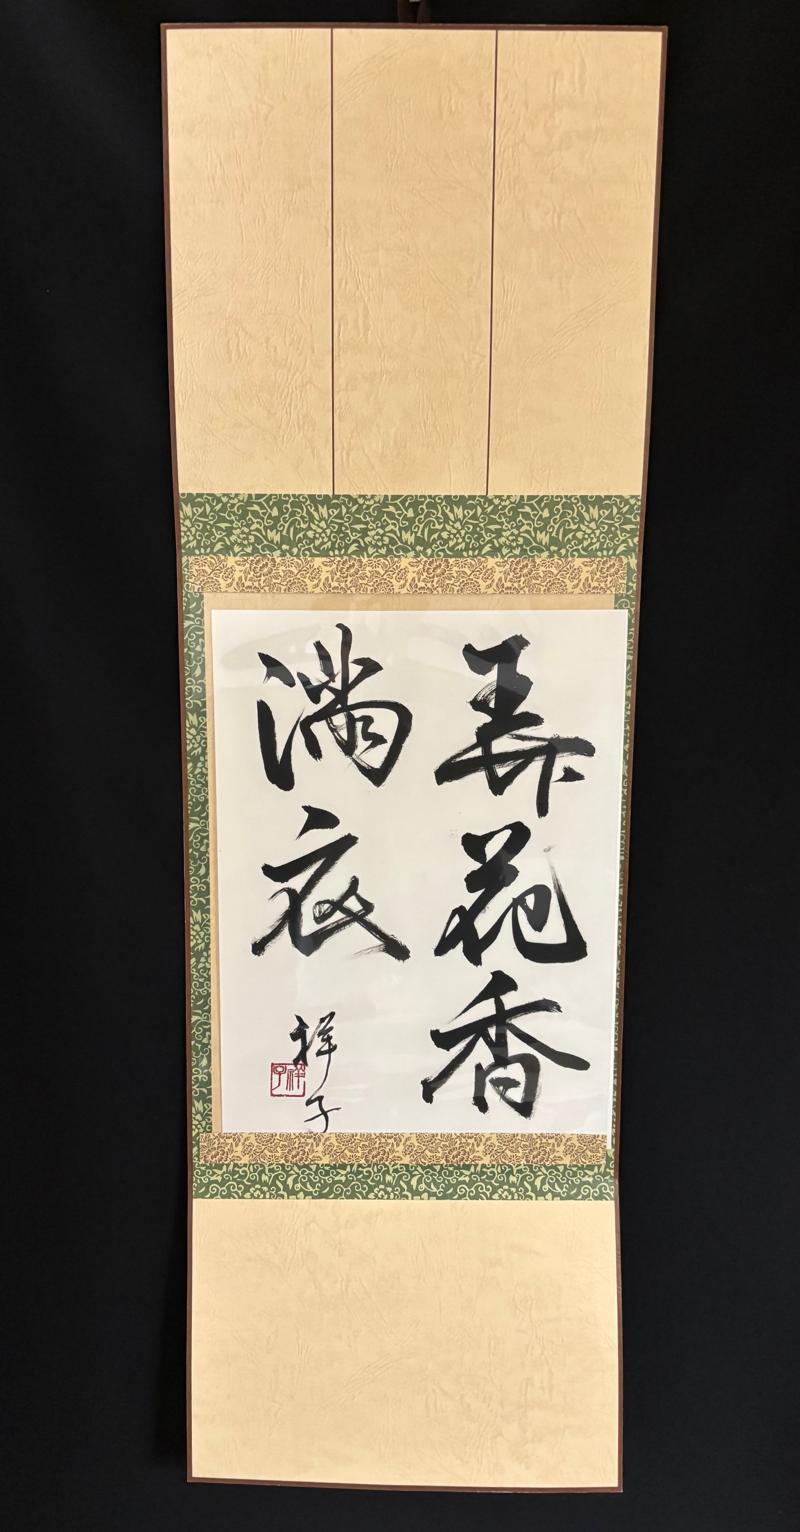 弄花香
満衣
祥子
祥子